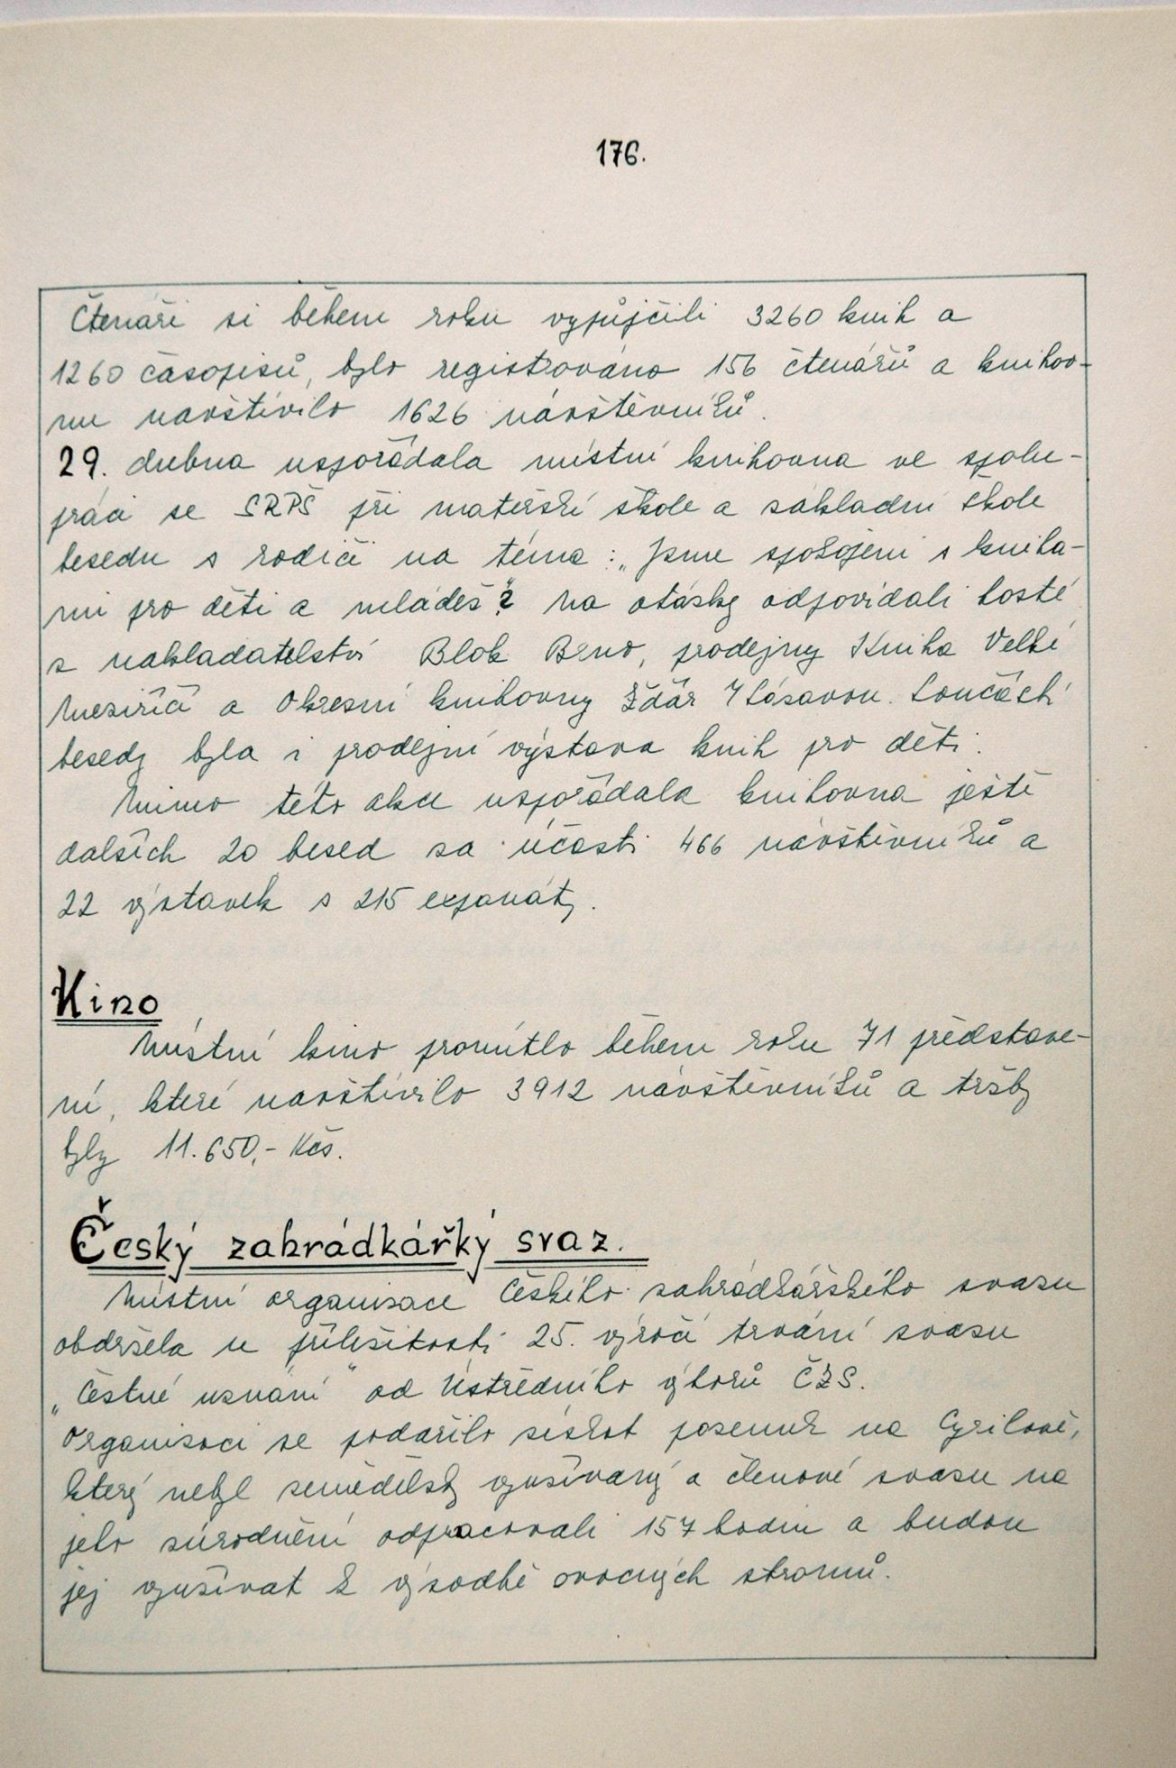 176.
Čtenáři si během roku vypůjčili 3260 knih a
1260 časopisů, bylo registrováno 156 čtenářů a knihov-
nu navštívilo 1626 návštěvníků.
29. dubna uspořádala místní knihovna ve spolu-
práci se SRPŠ při mateřské škole a základní škole
besedu s rodiči na téma: „Jsme spokojeni s kniha-
mi pro děti a mládež? Na otázky odpovídali hosté
z nakladatelství Blok Brno, prodejny Kniha Velké
Meziříčí a Okresní knihovny Žďár n/Sázavou. Součástí
besedy byla i prodejní výstava knih pro děti.
Mimo této akce uspořádala knihovna ještě
dalších 20 besed za účasti 466 návštěvníků a
22 výstavek s 215 exponáty.
Kino
Místní kino promítlo během roku 71 představe-
ní, které navštívilo 3912 návštěvníků a tržby
byly 11.650,- Kčs.
Český zahrádkářký svaz.
Místní organizace Českého zahrádkářského svazu
obdržela u příležitosti 25. výročí trvání svazu
„Čestné uznání" od Ústředního výborů ČZS.
Organizaci se podařilo získat pozemek na Cyrilově,
který nebyl zemědělsky využívaný a členové svazu na
jeho zúrodnění odpracovali 157 hodin a budou
jej využívat k výsadbě ovocných stromů.